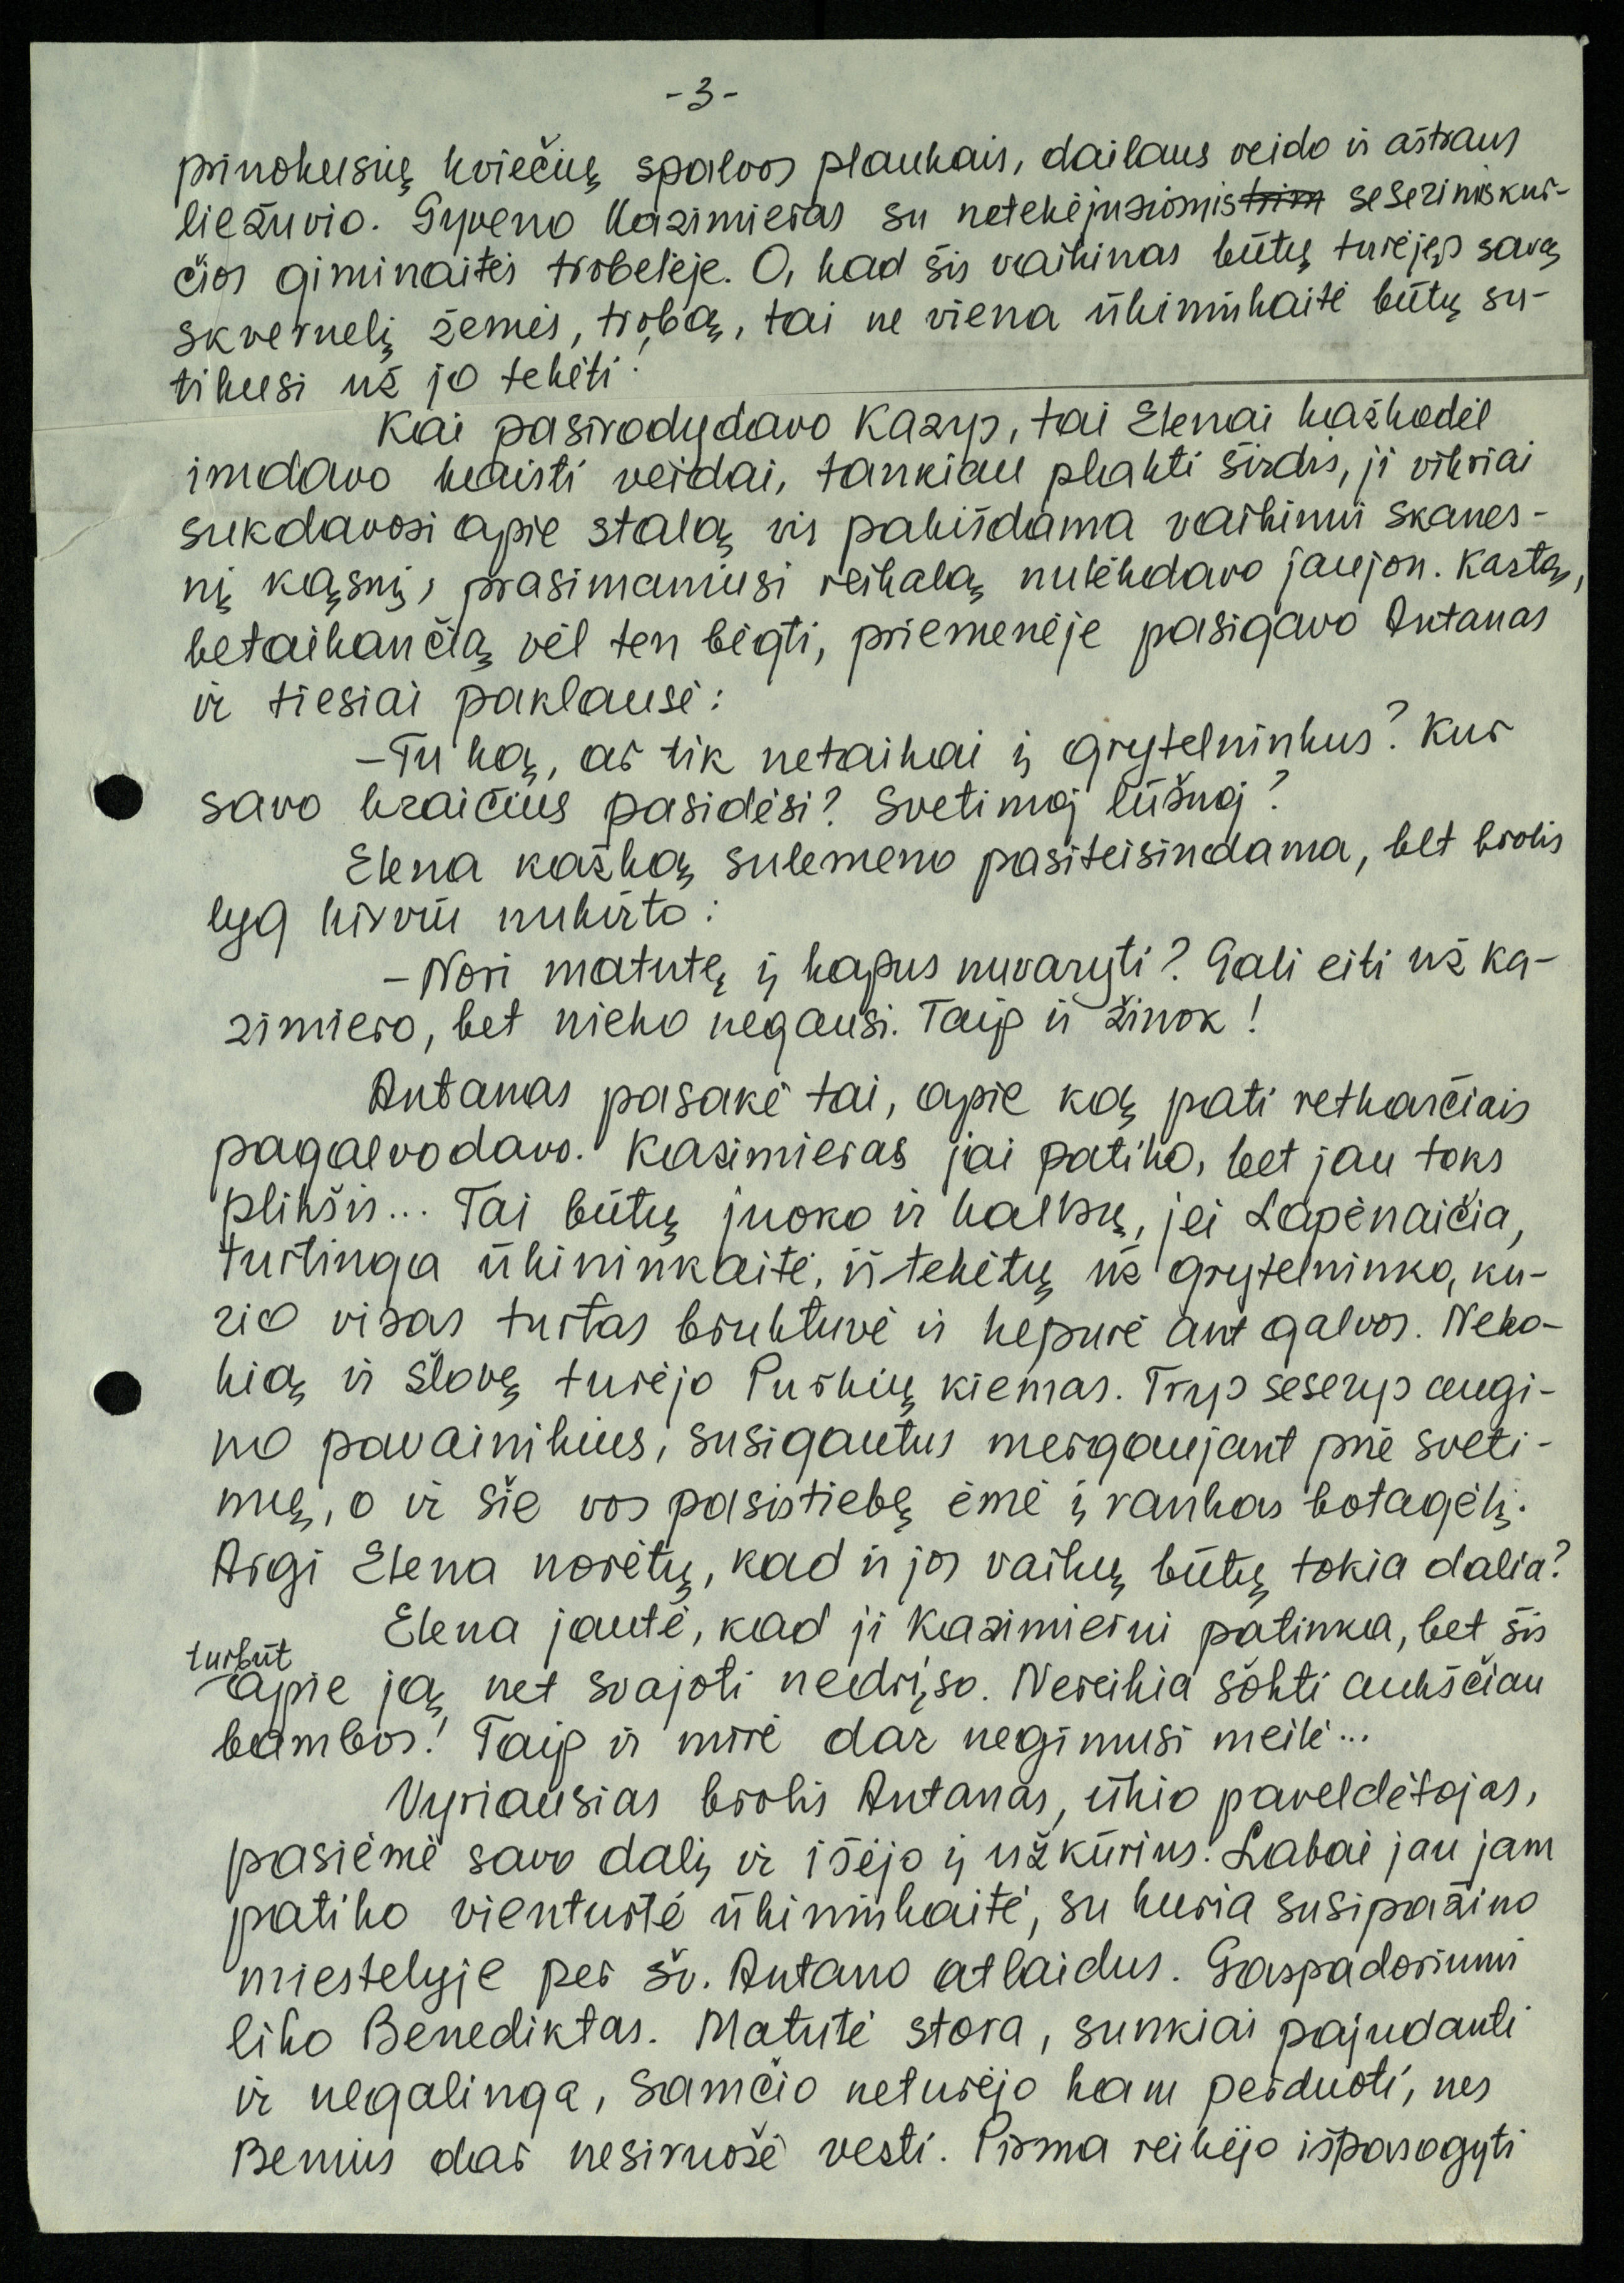 -3-
prinokusių kviečių spalvos plaukais, dailaus veido ir aštraus
liežuvio. Gyveno Kazimieras su netekėjusiomis ~~trim~~ seserimis kur-
čios giminaitės trobelėje. O, kad šis vaikinas būtų turėjęs savą
skvernelį žemės, trobą, tai ne viena ūkininkaitė būtų su-
tikusi už jo tekėti!
Kai pasirodydavo Kazys, tai Elenai kažkodėl
imdavo kaisti veidai, tankiau plakti širdis, ji vikriai
sukdavosi apie stalą vis pakišdama vaikinui skanes-
nį kąsnį, prasimaniusi reikalą nulėkdavo jaujon. Kartą,
betaikančią vėl ten bėgti, priemenėje pasigavo Antanas
ir tiesiai paklausė:
-Tu ką, ar tik netaikai į grytelninkus? Kur
savo kraičius pasidėsi? Svetimoj lūšnoj?
Elena kažką sulemeno pasiteisindama, bet brolis
lyg kirviu nukirto:
-Nori matutę į kapus nuvaryti? Gali eiti už Ka-
zimiero, bet nieko negausi. Taip ir žinok!
Antanas pasakė tai, apie ką pati retkarčiais
pagalvodavo. Kazimieras jai patiko, bet jau toks
plikšis... Tai būtų juoko ir kalbų, jei Lapėnaičia,
turtinga ūkininkaitė, ištekėtų už grytelninko, ku-
rio visas turtas bruktuvė ir kepurė ant galvos. Neko-
kią ir šlovę turėjo Purkių kiemas. Trys seserys augi-
no pavainikius, susigautus mergaujant pie sveti-
mų, o ir šie vos pasistiebę ėmė į rankas botagėlį.
Argi Elena norėtų, kad ir jos vaikų būtų tokia dalia?
Elena jautė, kad ji Kazimierui patinka, bet šis
turbūt
apie ją net svajoti nedrįso. Nereikia šokti aukščiau
bambos! Taip ir mirė dar negimusi meilė...
Vyriausias brolis Antanas, ūkio paveldėtojas,
pasiėmė savo dalį ir išėjo į užkurius. Labai jau jam
patiko vienturtė ūkininkaitė, su kuria susipažino
miestelyje per šv. Antano atlaidus. Gaspadoriumi
liko Benediktas. Matutė stora, sunkiai pajudanti
ir negalinga, samčio neturėjo kam perduoti, nes
Benius dar nesiruošė vesti. Pirma reikėjo išpasogyti